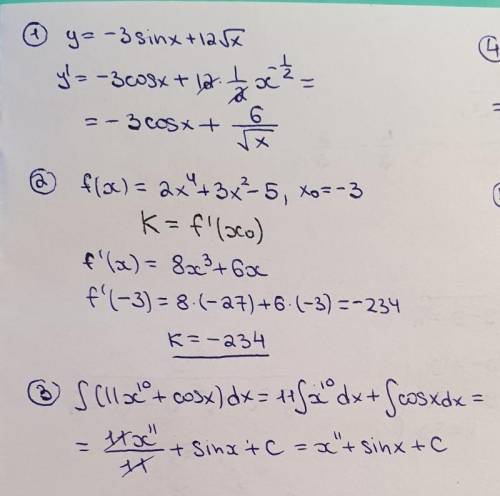 ① y = -3sinx + 12√x
y' = -3cosx + 12 · 1/2 x^(-1/2) =
= -3cosx + 6/√x
② f(x) = 2x⁴ + 3x² - 5, x₀ = -3
K = f'(x₀)
f'(x) = 8x³ + 6x
f'(-3) = 8·(-27) + 6·(-3) = -234
K = -234
③ ∫(11x¹⁰ + cosx)dx = 11∫x¹⁰dx + ∫cosxdx =
= 11x¹¹/11 + sinx + C = x¹¹ + sinx + C
④
=